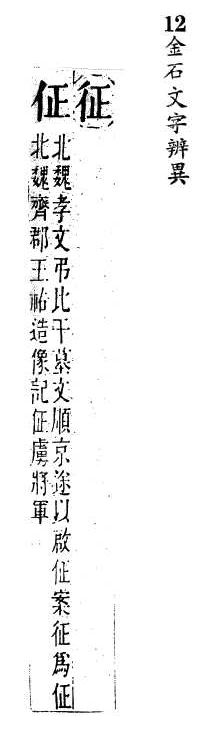 12金石文字辨異
征
佂
北魏孝文吊比干墓文順京途以啟佂案征爲佂
北魏齊郡王祐造像記佂虜將軍